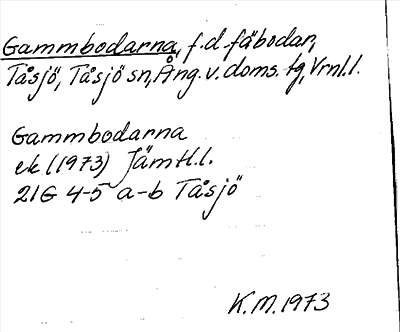 Gammbodarna, f.d. fäbodar,
Tåsjö, Tåsjö sn, Ång. v. doms. tg, Vrnl. l.
Gammbodarna
ek (1973) Jämtl. l.
21G 4-5 a-b Tåsjö
K.M. 1973